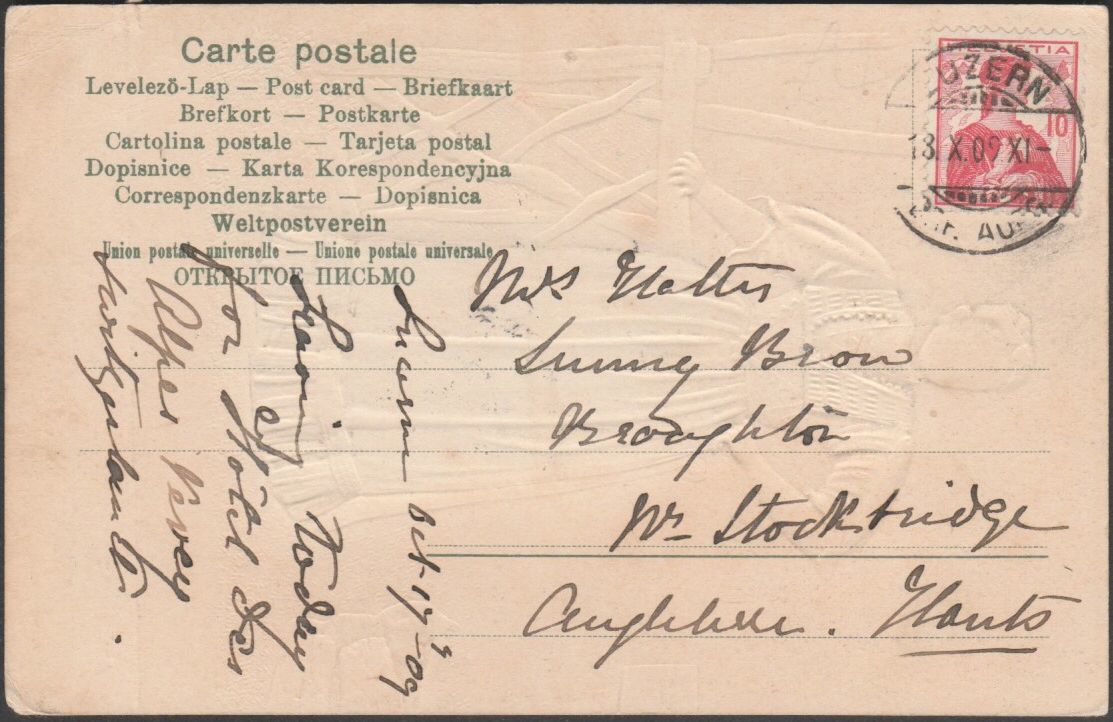 Carte postale
Levelező-Lap — Post card — Briefkaart
Brefkort — Postkarte
Cartolina postale — Tarjeta postal
Dopisnice — Karta Korespondencyjna
Correspondenzkarte — Dopisnica
Weltpostverein
Union postale universelle — Unione postale universale
ОТКРЫТОЕ ПИСЬМО
HELVETIA
10
LUZERN
18.X.09.XI-
AUFG.
Mrs Hatter
Sunny Brow
Broughton
Nr Stockbridge
Angleterre. Hants
Lucerne Oct-17-09
Leaving today
for Hotel des
Alpes Vevey
Switzerland.